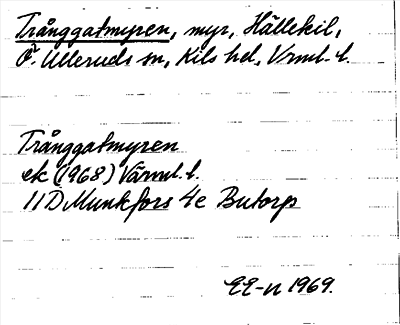 Trånggatmyren, myr, Hällekil,
Ö. Ulleruds sn, Kils hd, Vrml. l.
Trånggatmyren
ek (1968) Värml. l.
11D Munkfors 4e Butorp
EE-n 1969.